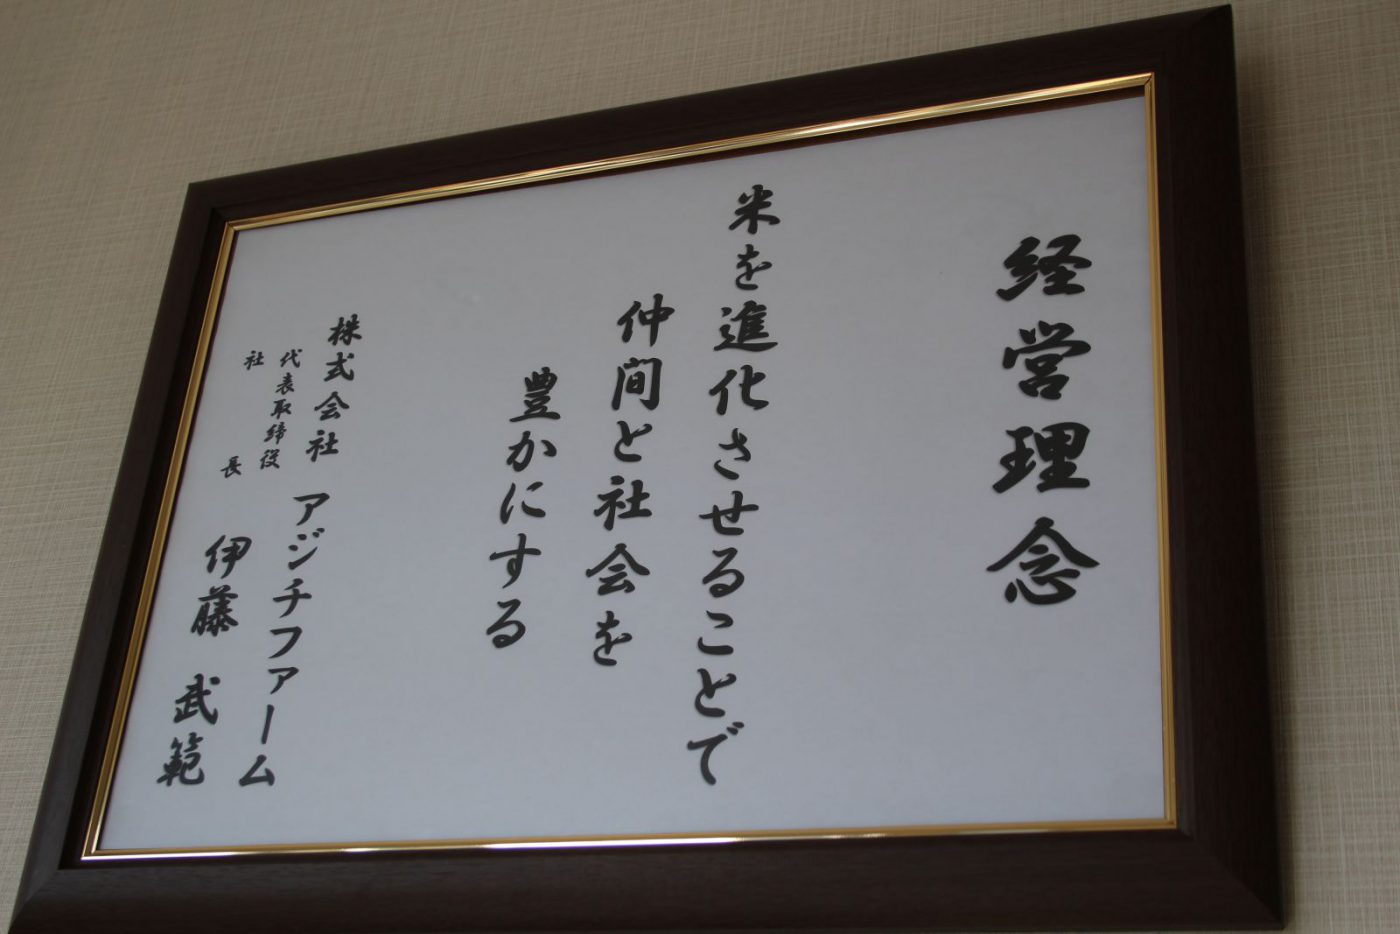 経営理念
米を進化させることで
仲間と社会を
豊かにする
株式会社 アジチファーム
代表取締役
社長 伊藤 武範